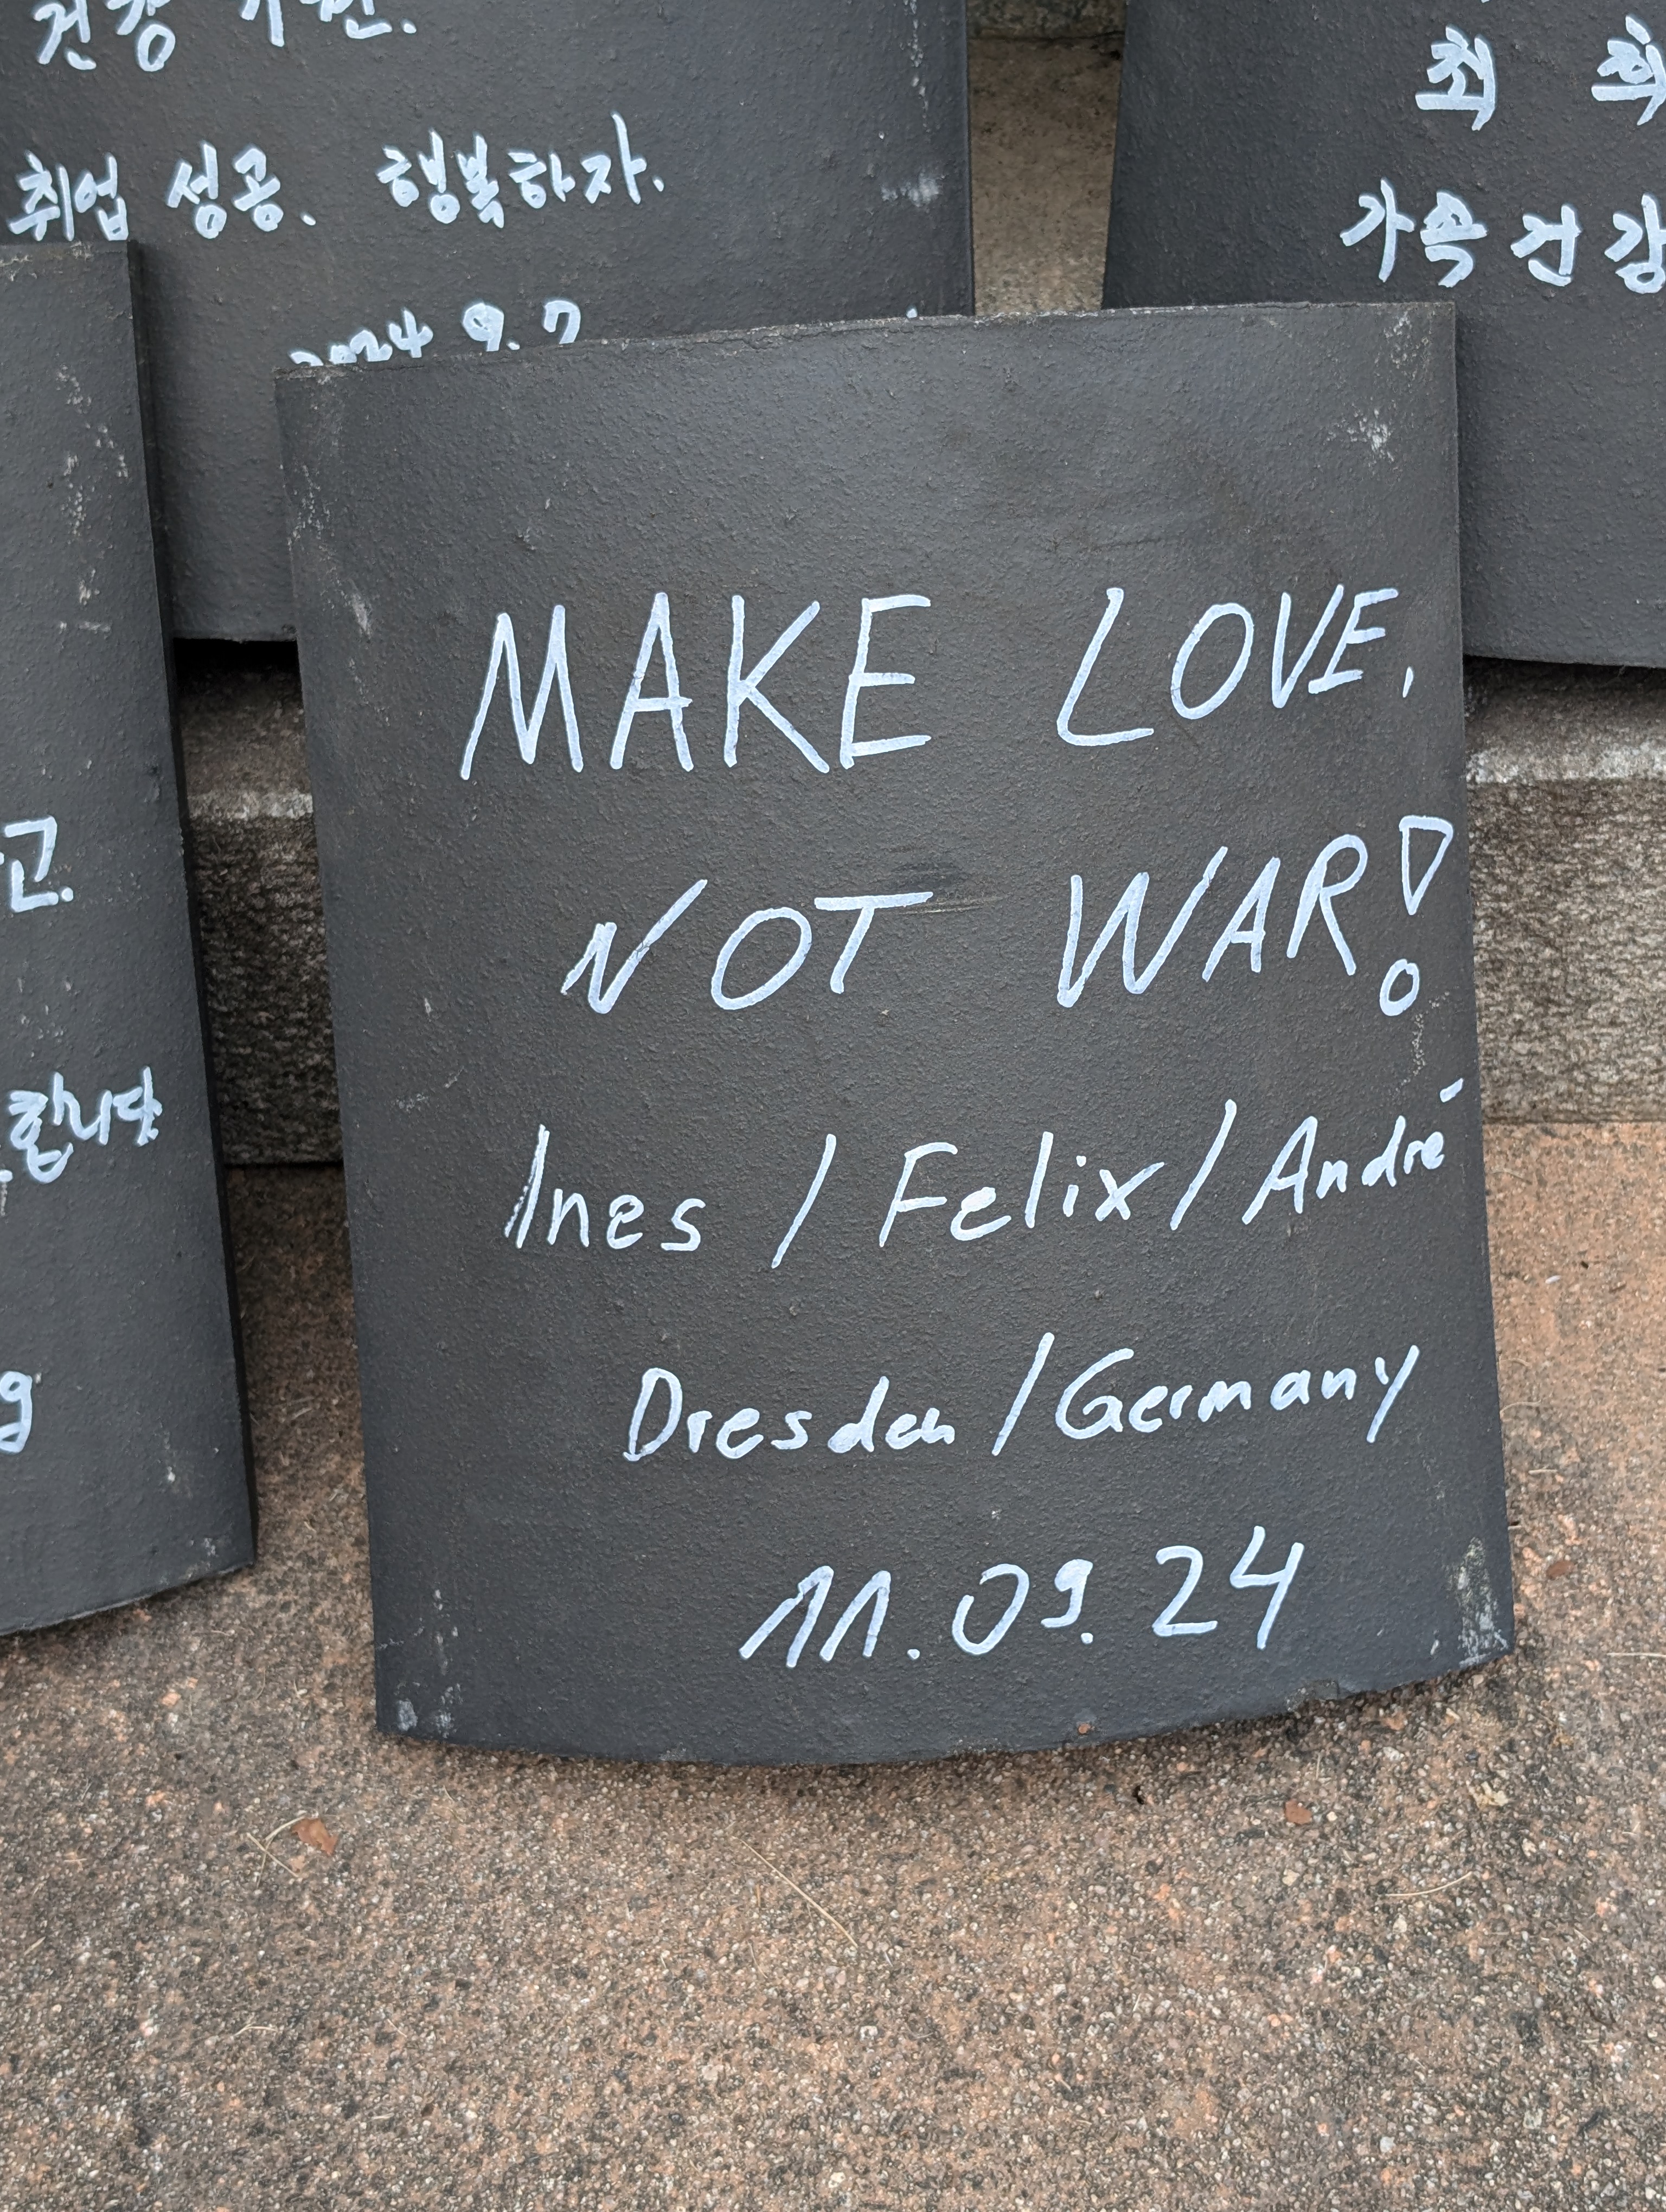 건강
취업 성공. 행복하자.
2024 9.7
최
가족 건강
고.
합니다
MAKE LOVE,
NOT WAR!
Ines / Felix / André
Dresden / Germany
11.09.24